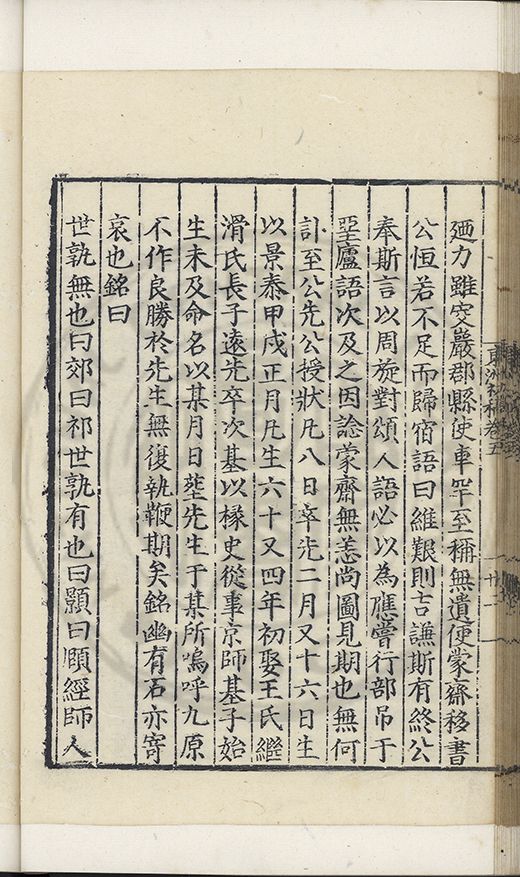 廼力雖突嚴郡縣使車罕至稱無遺使蒙齋移書
公恒若不足而歸宿語曰維艱則吉謙斯有終公
奉斯言以周旋對頌人語必以為應嘗行部吊于
堊廬語次及之因諗蒙齋無恙尚圖見期也無何
訃至公先公授狀凡八日卒先二月又十六日生
以景泰甲戌正月凡生六十又四年初娶王氏繼
滑氏長子遠先卒次基以椽史從事京師基子始
生未及命名以某月日塟先生于某所嗚呼九原
不作良勝於先生無復執鞭期矣銘幽有石亦寄
哀也銘曰
世孰無也曰郊曰祁世孰有也曰顥曰頤經師人
東洲初稿卷五